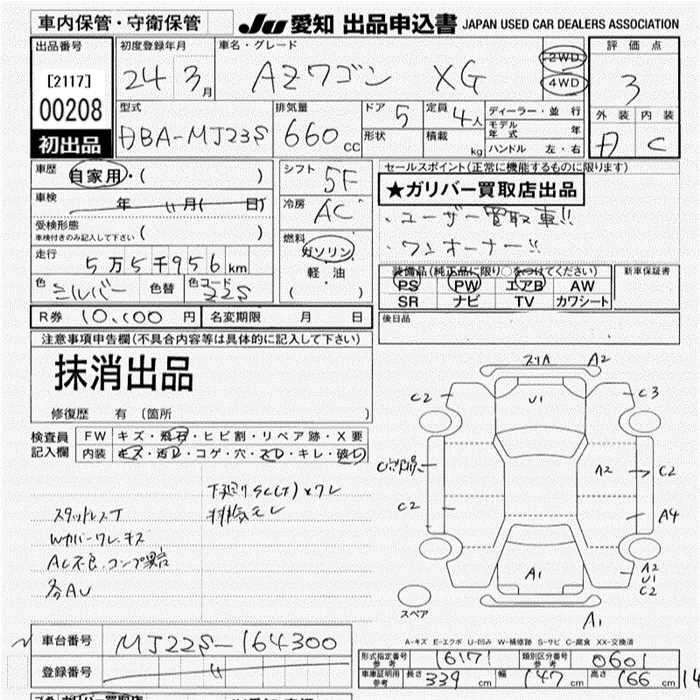 車内保管・守衛保管
JU 愛知 出品申込書 JAPAN USED CAR DEALERS ASSOCIATION
出品番号 初度登録年月 車名・グレード 評価点
[2117] 24 3月 AZワゴン XG 2WD 4WD 3
00208 型式 排気量 ドア 5 定員 4人 ディーラー・並行 外装 内装
初出品 DBA-MJ23S 660cc 形状 積載 kg モデル年式 年 ハンドル 左・右 A C
車歴 自家用・( ) シフト 5F セールスポイント(正常に機能するものに限ります)
車検 年 11月( 日) 冷房 AC ★ガリバー買取店出品
受検形態 車検付きのみ記入して下さい ( ) ・ユーザー買取車!!
走行 5万5千956km 燃料 ガソリン 軽油 ( ) ・ワンオーナー!!
色 シルバー 色替 色コード 22S 装備品(純正品に限り○をつけてください) 新車保証書
PS PW エアB AW
SR ナビ TV カワシート
R券 10,000円 名変期限 月 日 後日品
注意事項申告欄(不具合内容等は具体的に記入して下さい)
抹消出品
修復歴 有 (箇所 )
検査員記入欄 FW キズ・飛石・ヒビ割・リペア跡・X要
内装 キズ・汚レ・コゲ・穴・ズレ・キレ・破レ
スリA A2
C2 U1 C3
A2 C2
C2 A4
A1 A2 U1 C2
スペア A1
スタッドレスT
Wカバーワレ、キズ
AC不良、コンプ異音
各AU
排気モレ
A-キズ E-エクボ U-凹み W-補修跡 S-サビ C-腐食 XX-交換済
車台番号 MJ22S-164300
登録番号
形式指定番号 参考 16171 類別区分番号 参考 0601
車庫証明用 参考 長さ 339 cm 幅 147 cm 高さ 166 cm
ガリバー買取店